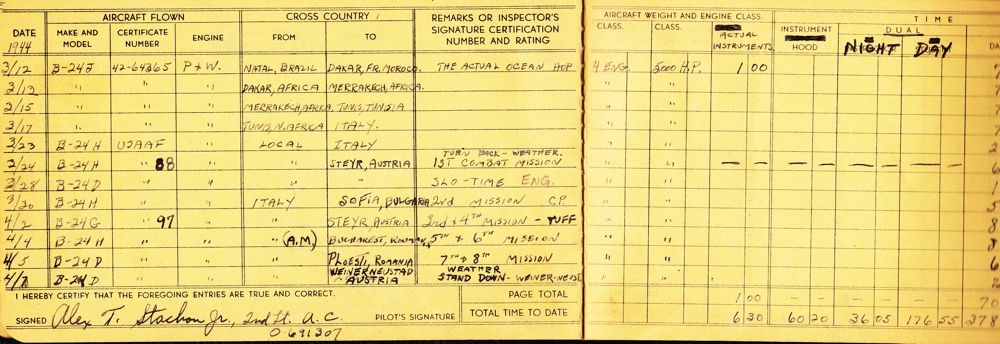 AIRCRAFT FLOWN CROSS COUNTRY REMARKS OR INSPECTOR'S SIGNATURE CERTIFICATION NUMBER AND RATING AIRCRAFT WEIGHT AND ENGINE CLASS. TIME
DATE 1944 MAKE AND MODEL CERTIFICATE NUMBER ENGINE FROM TO CLASS. CLASS. ACTUAL INSTRUMENTS INSTRUMENT HOOD DUAL NIGHT DAY
3/12 B-24J 42-64365 P & W. NATAL, BRAZIL DAKAR, FR. MOROCO. THE ACTUAL OCEAN HOP 4 ENG. 5000 H.P. 1 00
3/13 " " " DAKAR, AFRICA MERRAKECH, AFRICA. " "
3/15 " " " MERRAKECH, AFRICA. TUNIS, TUNISIA " "
3/17 " " " TUNIS, N. AFRICA ITALY. " "
3/23 B-24H USAAF " LOCAL ITALY " "
3/24 B-24H " 88 " " STEYR, AUSTRIA TURN BACK - WEATHER. 1ST COMBAT MISSION " " — — — — — — — —
3/28 B-24D " " " " SLO-TIME ENG. " "
3/30 B-24H " " ITALY SOFIA, BULGARIA 2nd MISSION C.P. " "
4/2 B-24G 97 " " STEYR, AUSTRIA 3rd & 4TH MISSION - TUFF " "
4/4 B-24H " " " (A.M.) BUCHAREST, 5TH & 6TH MISSION " "
4/5 B-24D " " " PLOESTI, ROMANIA 7TH & 8TH MISSION " "
4/ B-24D " " " WEINERNEUSTAD AUSTRIA WEATHER STAND DOWN - WEINER-NEUST " "
I HEREBY CERTIFY THAT THE FOREGOING ENTRIES ARE TRUE AND CORRECT. PAGE TOTAL 1 00 70
SIGNED Alex T. Stachon Jr., 2nd Lt. A.C. PILOT'S SIGNATURE TOTAL TIME TO DATE 6 30 60 20 36 05 176 55 378
O-691207